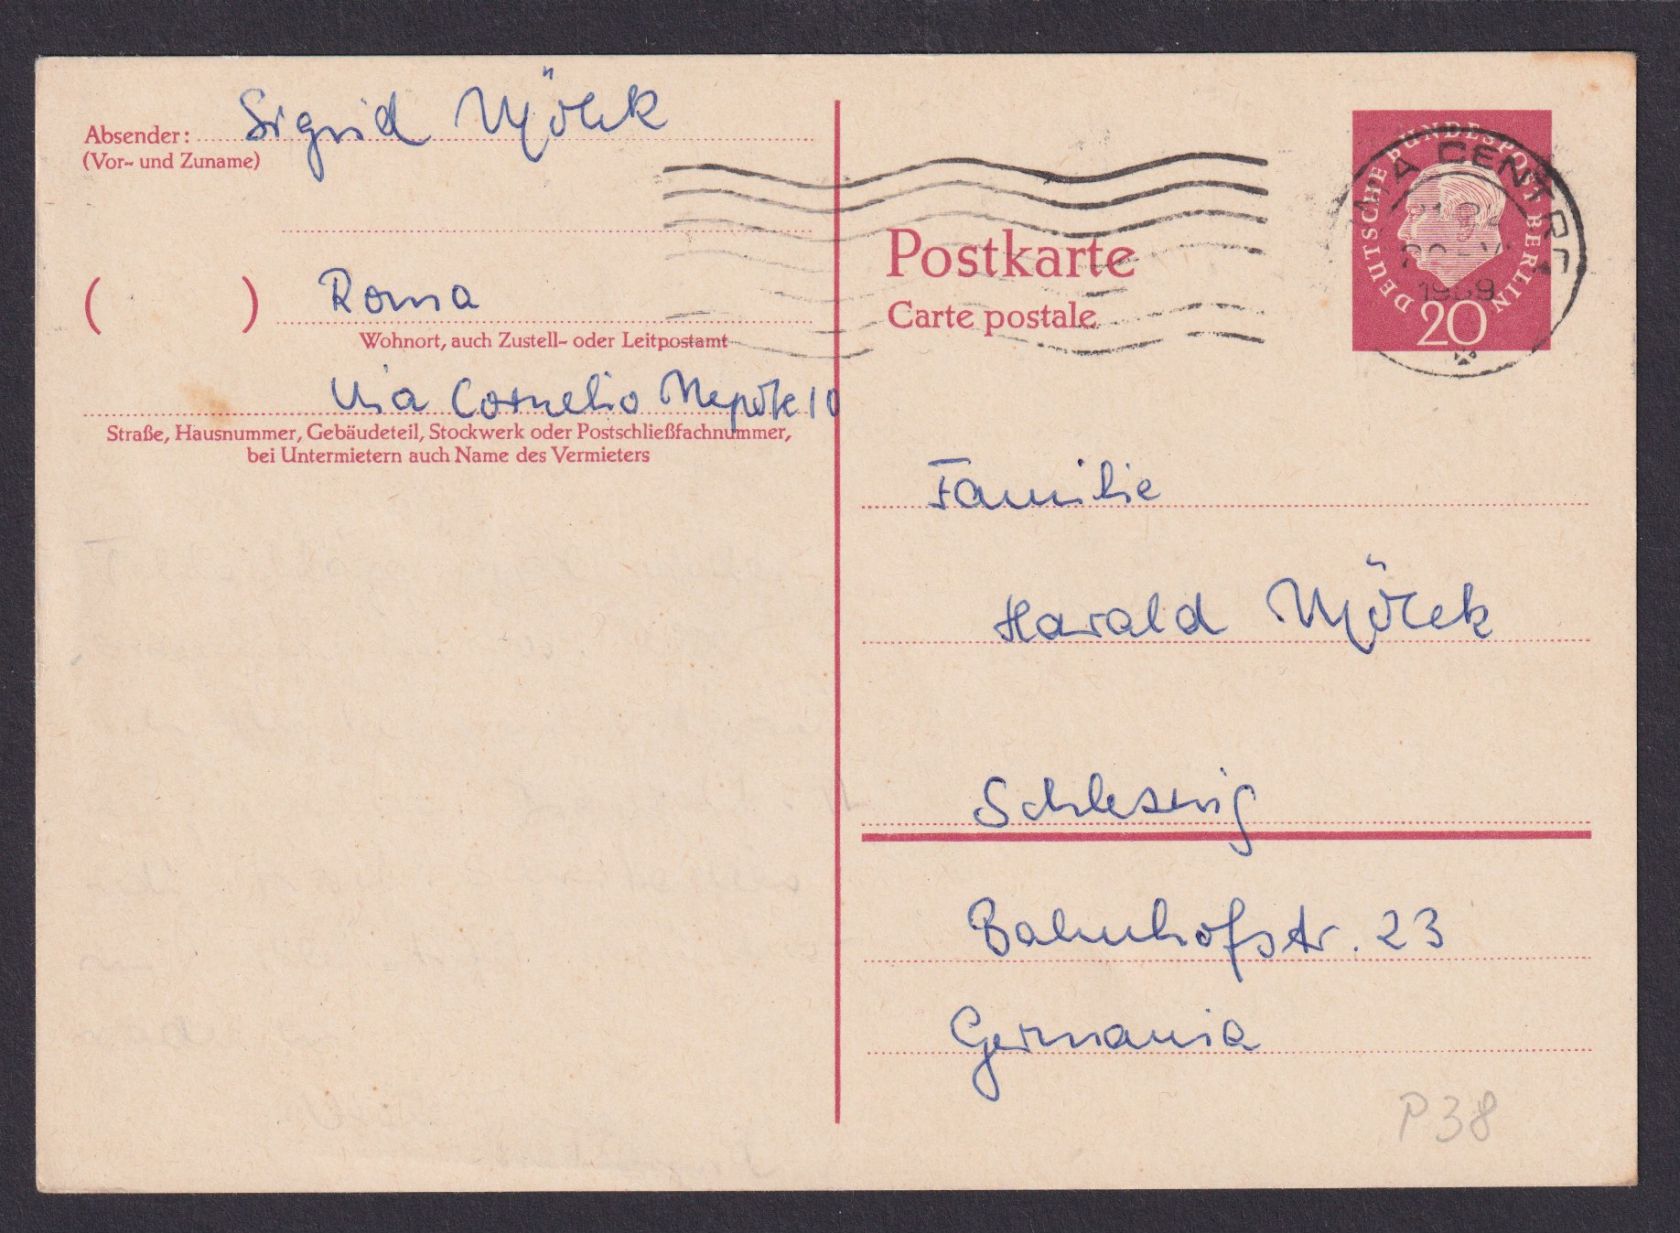 Absender: Sigrid Mölck
(Vor- und Zuname)
( ) Roma
Wohnort, auch Zustell- oder Leitpostamt
Via Cornelio Nepote 10
Straße, Hausnummer, Gebäudeteil, Stockwerk oder Postschließfachnummer,
bei Untermietern auch Name des Vermieters
Postkarte
Carte postale
DEUTSCHE BUNDESPOST BERLIN
20
1959
Familie
Harald Mölck
Schleswig
Bahnhofstr. 23
Germania
P38